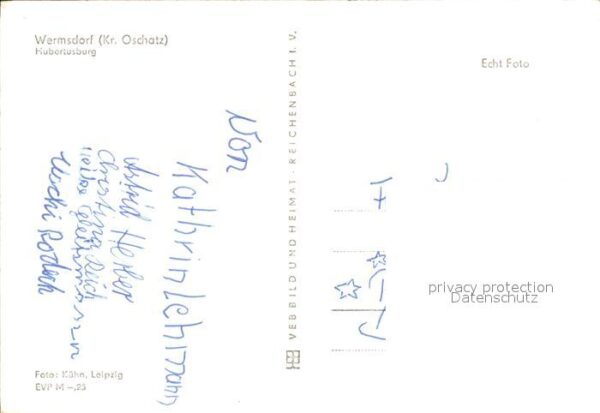 Wermsdorf (Kr. Oschatz)
Hubertusburg
Echt Foto
VEB BILD UND HEIMAT · REICHENBACH I. V.
Von
Kathrin Lehmann
Astrid Herber
Christina Reich
Uschi
privacy protection
Datenschutz
Foto: Kühn, Leipzig
EVP M –,25